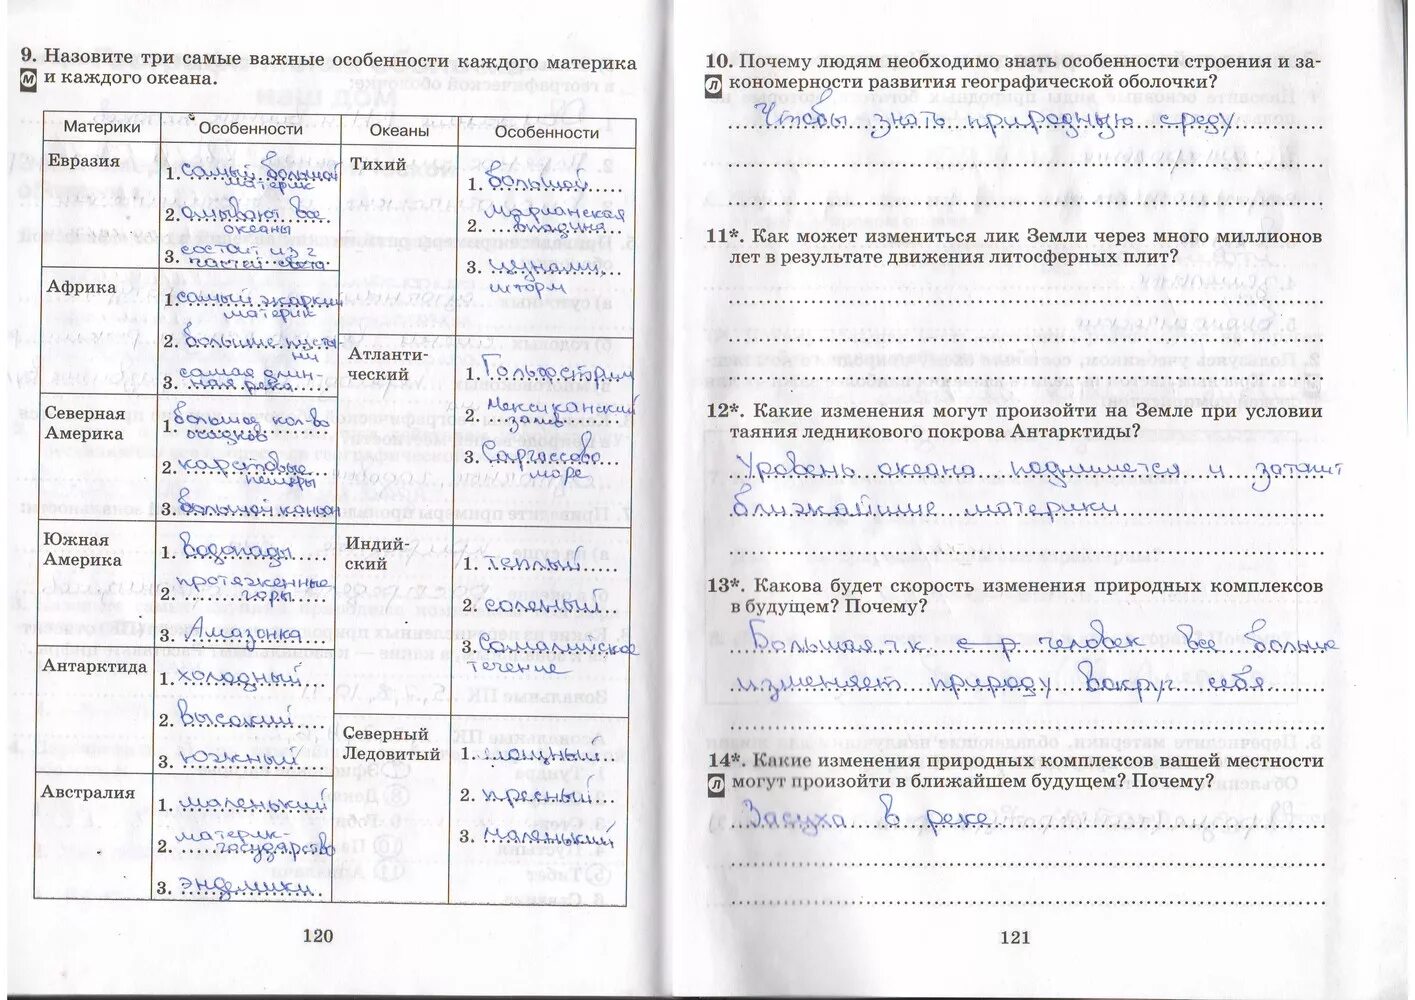 9. Назовите три самые важные особенности каждого материка
м и каждого океана.
Материки
Особенности
Океаны
Особенности
Евразия
1. самый большой
материк
2. омывают все
океаны
3. состоит из 2
частей света
Африка
1. самый жаркий
материк
2. большие пусты-
ни
3. самая длин-
ная река
Северная
Америка
1. большое кол-во
осадков
2. карстовые
пещеры
3. большой каньон
Южная
Америка
1. водопады
2. протяженные
горы
3. Амазонка
Антарктида
1. холодный
2. высокий
3. южный
Австралия
1. маленький
2. материк-
государство
3. эндемики
Тихий
1. большой
2. марианская
впадина
3. цунами,
шторм
Атланти-
ческий
1. Гольфстрим
2. Мексиканский
залив
3. Саргассово
море
Индий-
ский
1. теплый
2. соленый
3. Сомалийское
течение
Северный
Ледовитый
1. мощный
2. пресный
3. маленький
120
10. Почему людям необходимо знать особенности строения и за-
л кономерности развития географической оболочки?
Чтобы знать природную среду
11*. Как может измениться лик Земли через много миллионов
лет в результате движения литосферных плит?
12*. Какие изменения могут произойти на Земле при условии
таяния ледникового покрова Антарктиды?
Уровень океана поднимется и затопит
ближайшие материки
13*. Какова будет скорость изменения природных комплексов
в будущем? Почему?
Большая, т.к. человек все больше
изменяет природу вокруг себя
14*. Какие изменения природных комплексов вашей местности
л могут произойти в ближайшем будущем? Почему?
Засуха в реке
121